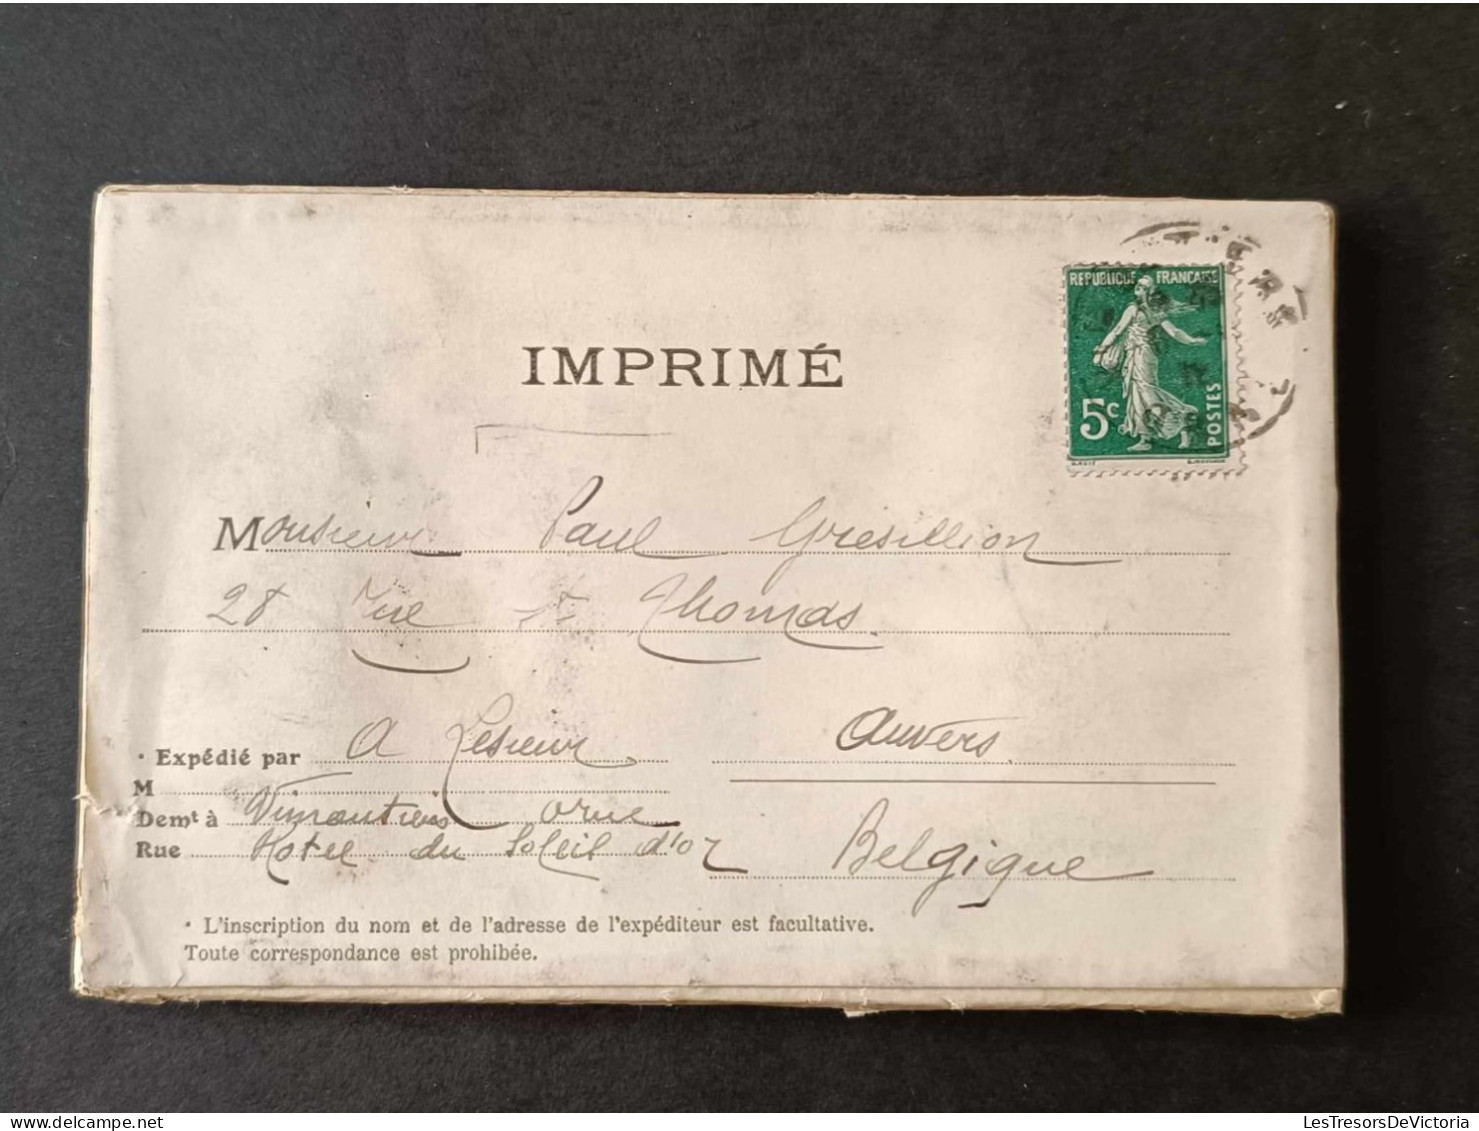 REPUBLIQUE FRANCAISE
5c
POSTES
IMPRIMÉ
Monsieur Paul Gresillion
28 Rue St Thomas
Anvers
Belgique
• Expédié par A Lesieur
M
Demt à Vimoutiers Orne
Rue Hotel du Soleil d'or
• L'inscription du nom et de l'adresse de l'expéditeur est facultative.
Toute correspondance est prohibée.
LesTresorsDeVictoria